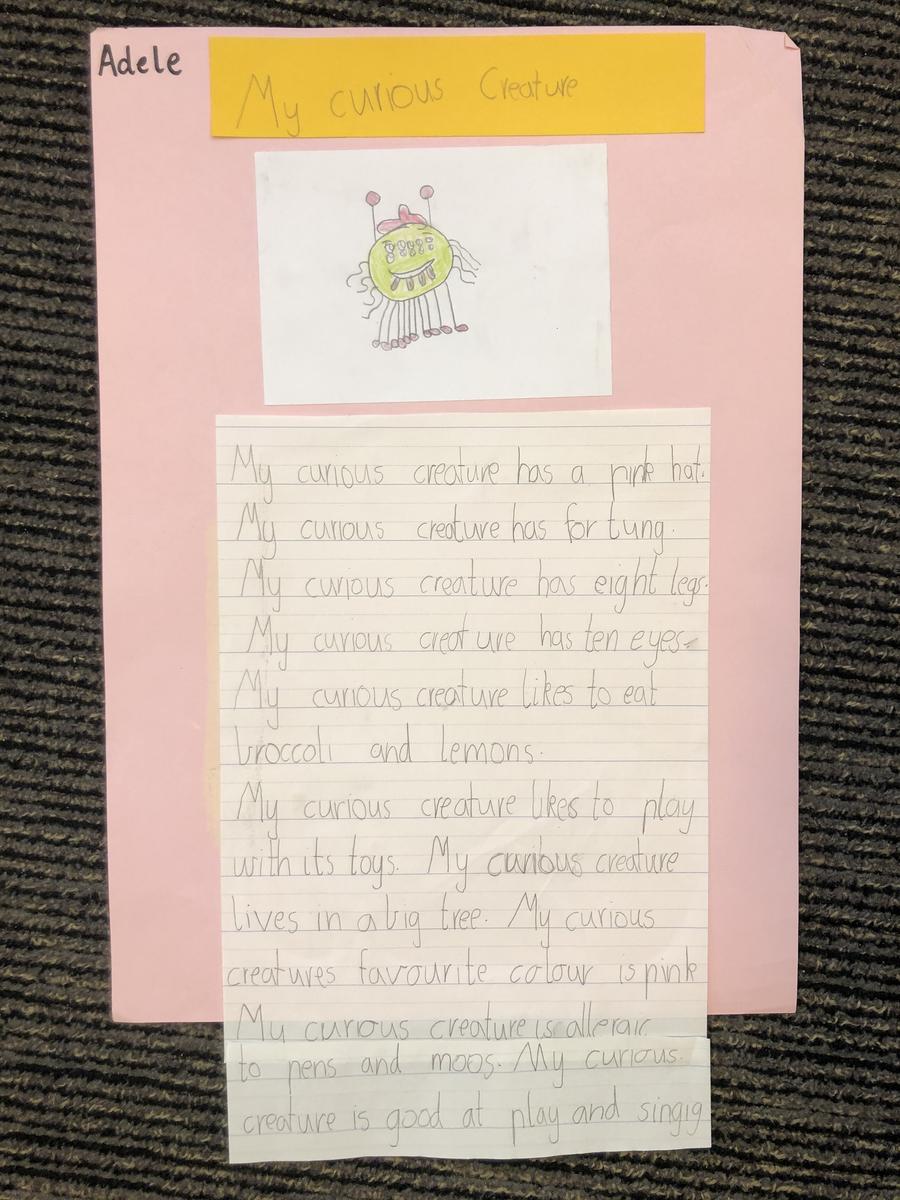 Adele
My curious Creature
My curious creature has a pink hat.
My curious creature has for tung.
My curious creature has eight legs.
My curious creature has ten eyes.
My curious creature likes to eat
broccoli and lemons.
My curious creature likes to play
with its toys. My curious creature
lives in a big tree. My curious
creatures favourite colour is pink
My curious creature is allergic
to pens and moos. My curious.
creature is good at play and singig